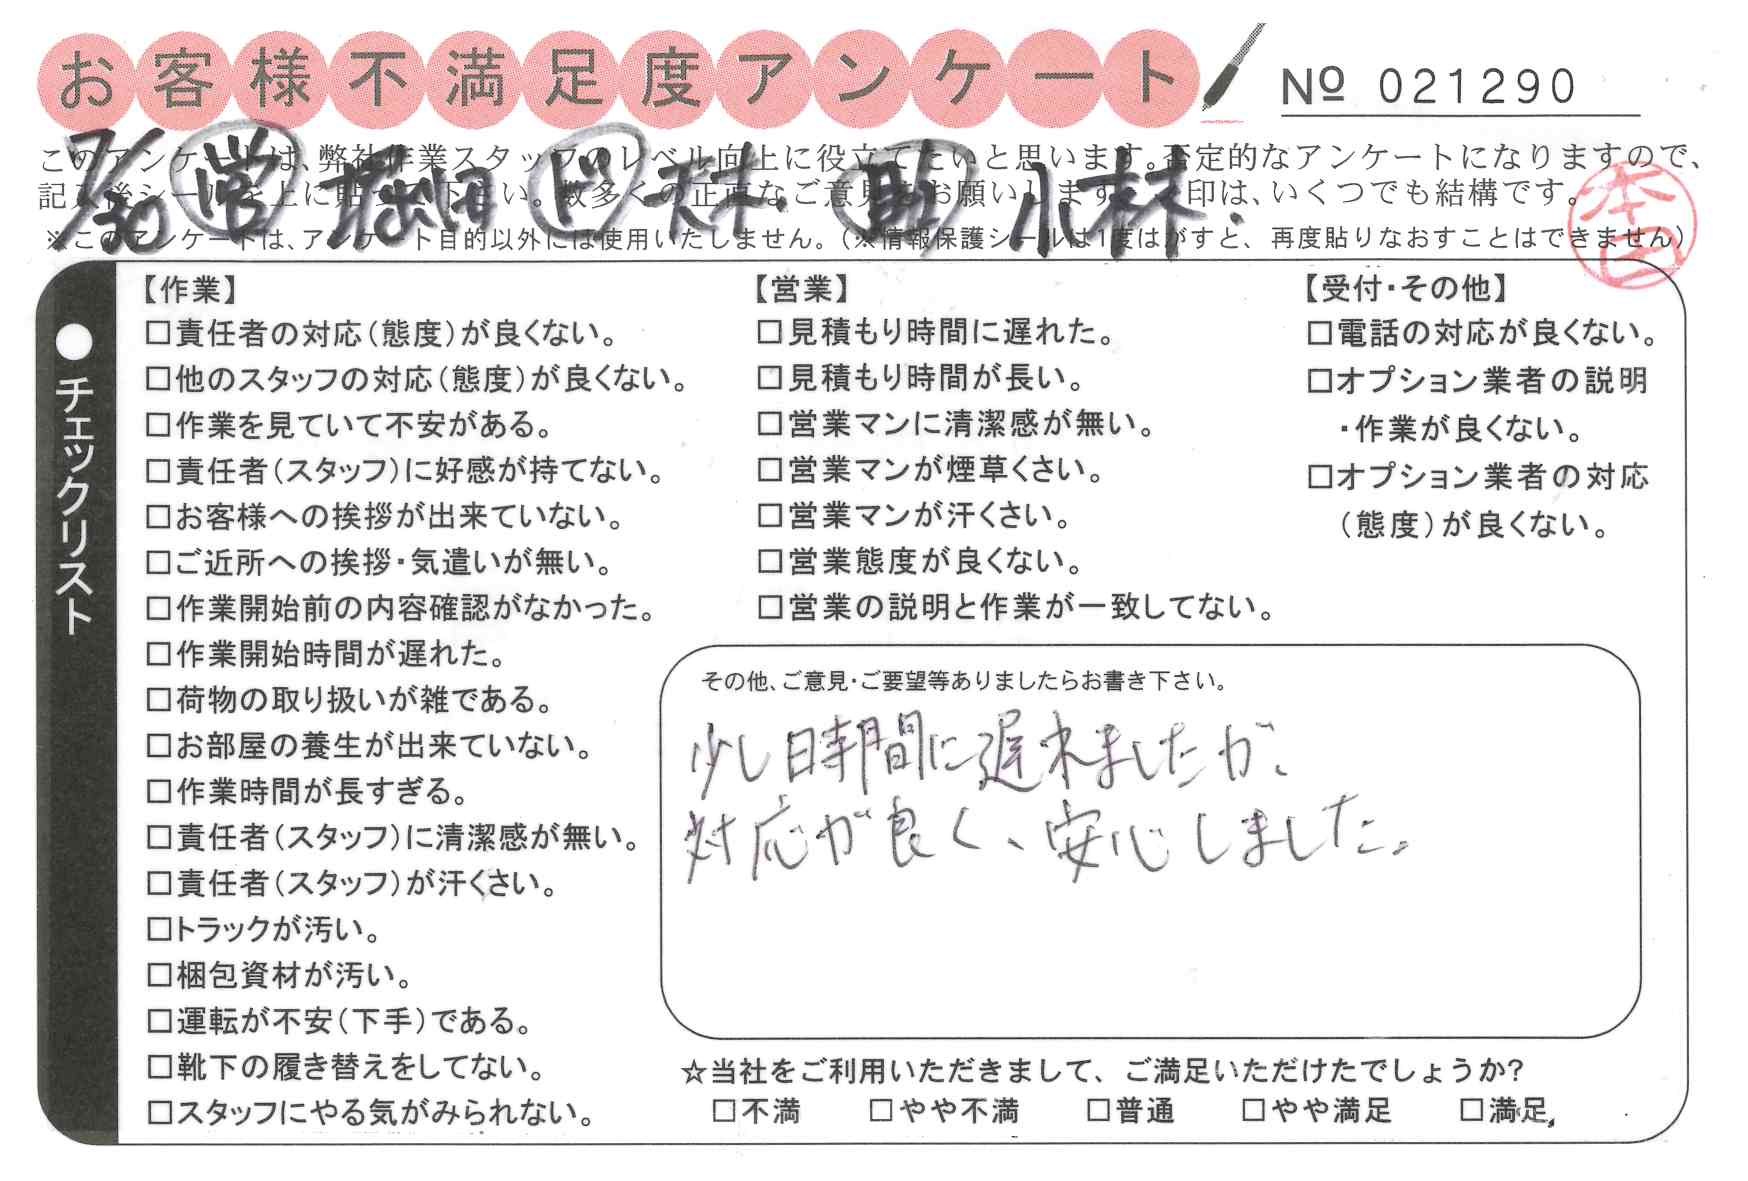 お客様不満足度アンケート
Nº 021290
7/30 営  円 助 小林.
このアンケートは、弊社作業スタッフのレベル向上に役立てたいと思います。否定的なアンケートになりますので、
記入後シールを上に貼って下さい。数多くの正直なご意見をお願いします。 印は、いくつでも結構です。
※このアンケートは、アンケート目的以外には使用いたしません。(※情報保護シールは1度はがすと、再度貼りなおすことはできません)
本田
●チェックリスト
【作業】
□責任者の対応(態度)が良くない。
□他のスタッフの対応(態度)が良くない。
□作業を見ていて不安がある。
□責任者(スタッフ)に好感が持てない。
□お客様への挨拶が出来ていない。
□ご近所への挨拶・気遣いが無い。
□作業開始前の内容確認がなかった。
□作業開始時間が遅れた。
□荷物の取り扱いが雑である。
□お部屋の養生が出来ていない。
□作業時間が長すぎる。
□責任者(スタッフ)に清潔感が無い。
□責任者(スタッフ)が汗くさい。
□トラックが汚い。
□梱包資材が汚い。
□運転が不安(下手)である。
□靴下の履き替えをしてない。
□スタッフにやる気がみられない。
【営業】
□見積もり時間に遅れた。
□見積もり時間が長い。
□営業マンに清潔感が無い。
□営業マンが煙草くさい。
□営業マンが汗くさい。
□営業態度が良くない。
□営業の説明と作業が一致してない。
【受付・その他】
□電話の対応が良くない。
□オプション業者の説明
・作業が良くない。
□オプション業者の対応
(態度)が良くない。
その他、ご意見・ご要望等ありましたらお書き下さい。
少し時間に遅れましたが、
対応が良く、安心しました。
☆当社をご利用いただきまして、ご満足いただけたでしょうか?
□不満 □やや不満 □普通 □やや満足 □満足